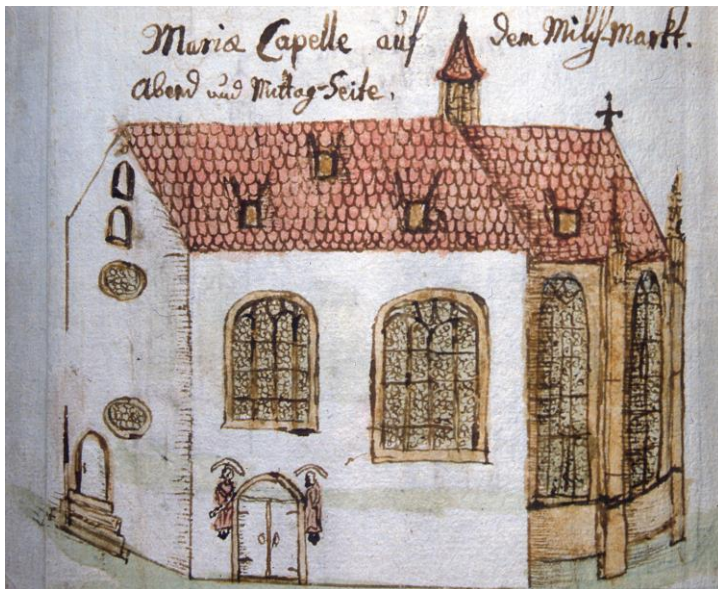 Mariæ Capelle auf dem Milch-Markt.
Abend und Mittag-Seite.